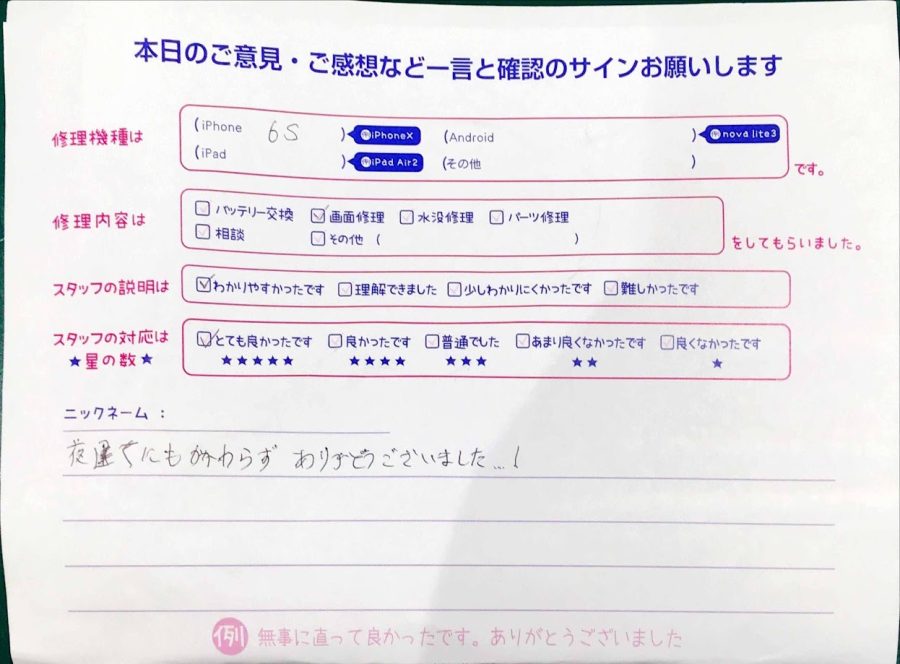 本日のご意見・ご感想など一言と確認のサインお願いします
修理機種は
(iPhone 6S ) iPhoneX (Android ) nova lite3
(iPad ) iPad Air2 (その他 ) です。
修理内容は
バッテリー交換 画面修理 水没修理 パーツ修理
相談 その他 ( ) をしてもらいました。
スタッフの説明は わかりやすかったです 理解できました 少しわかりにくかったです 難しかったです
スタッフの対応は とても良かったです 良かったです 普通でした あまり良くなかったです 良くなかったです
★星の数★ ★★★★★ ★★★★ ★★★ ★★ ★
ニックネーム :
夜遅くにもかかわらず ありがとうございました...!
例 無事に直って良かったです。ありがとうございました